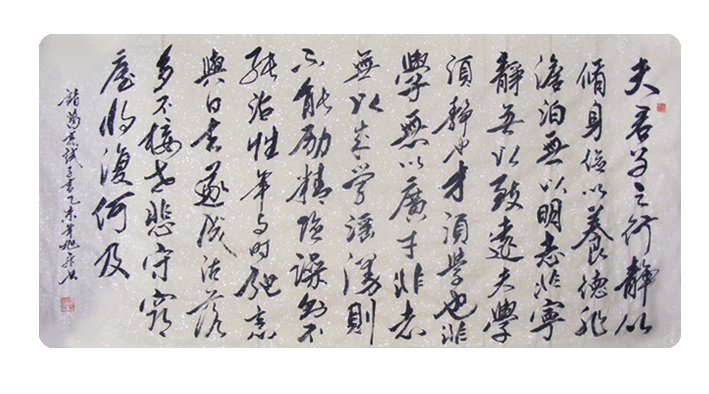 夫君子之行静以
脩身儉以養德非
澹泊無以明志非寧
静無以致遠夫學
須静也才須學也非
學無以廣才非志
無以成学淫漫則
不能励精險躁則不
能治性年与时馳意
與日去遂成枯落
多不接世悲守窮
廬将復何及
諸葛亮誡子書乙未年旭